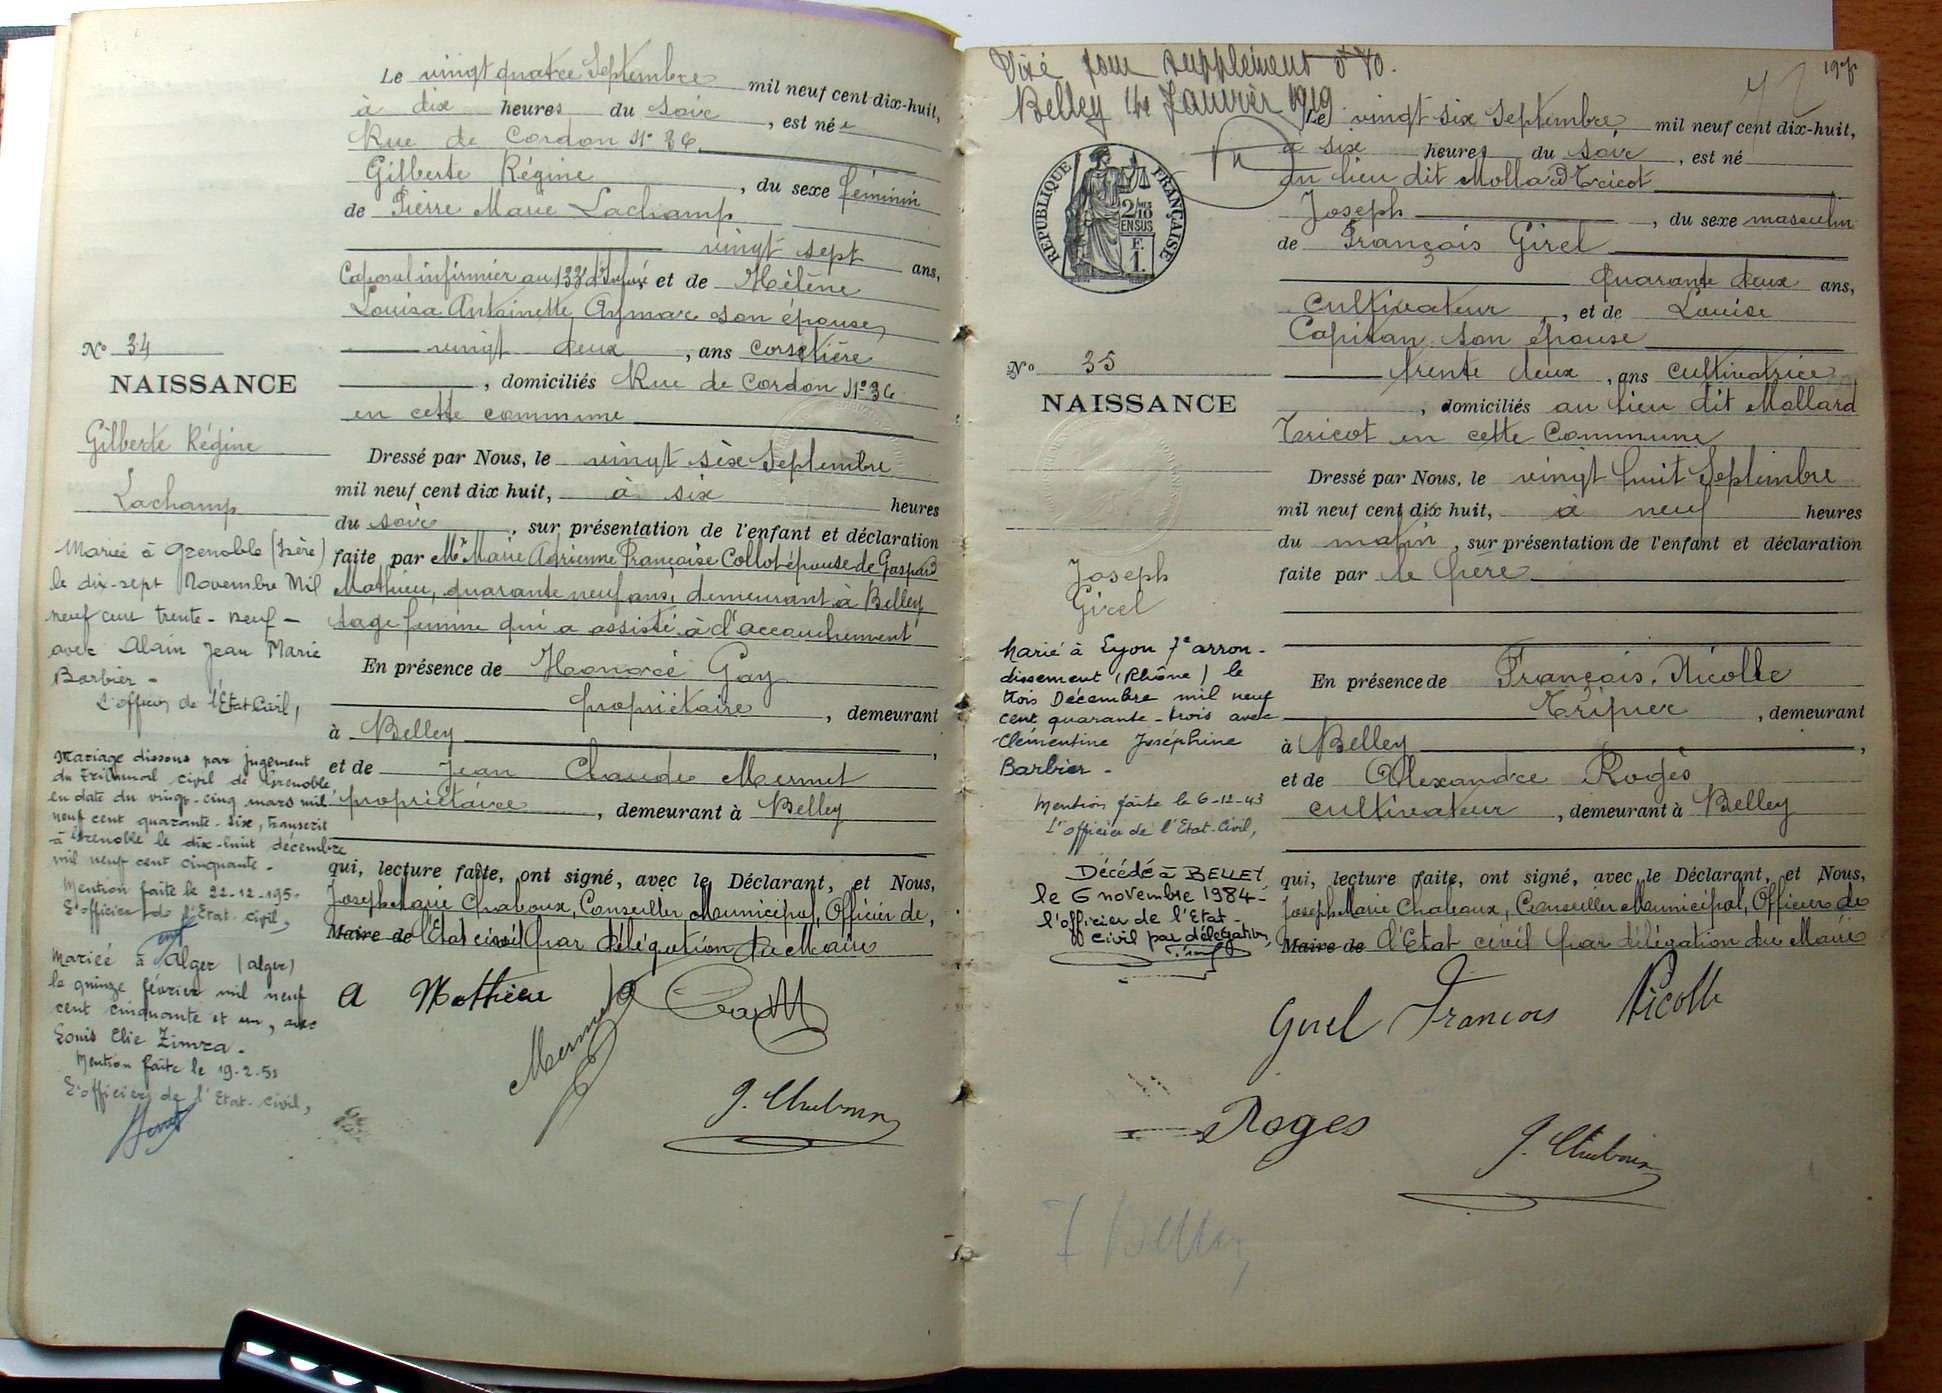 Le vingt quatre Septembre mil neuf cent dix-huit,
à dix heures du soir, est née
Rue de Cordon N° 36
Gilberte Régine, du sexe féminin
de Pierre Marie Lachamp
vingt sept ans,
Caporal infirmier au 133e d'Infie et de Hélène
Louisa Antoinette Aymar son épouse,
vingt deux, ans corsetière
, domiciliés Rue de Cordon N° 36
en cette commune
N° 34
NAISSANCE
Gilberte Régine
Lachamp
Dressé par Nous, le vingt six Septembre
mil neuf cent dix huit, à six heures
du soir, sur présentation de l'enfant et déclaration
faite par Me Marie Adrienne Françoise Collot épouse de Gaspard
Mathieu, quarante neuf ans, demeurant à Belley
sage femme qui a assisté à l'accouchement
En présence de Honoré Gay
propriétaire, demeurant
à Belley,
et de Jean Claude Mermet
propriétaire, demeurant à Belley
qui, lecture faite, ont signé, avec le Déclarant, et Nous,
Joseph Marie Chaboux, Conseiller Municipal, Officier de,
Maire de l'Etat civil par délégation du Maire
A Mathieu
Mermet
J. Chaboux
Mariée à Grenoble (Isère)
le dix-sept Novembre Mil
neuf cent trente-neuf -
avec Alain Jean Marie
Barbier -
L'officier de l'Etat Civil,
Mariage dissous par jugement
du Tribunal civil de Grenoble
en date du vingt-cinq mars mil
neuf cent quarante-six, transcrit
à Grenoble le dix-huit décembre
mil neuf cent cinquante -
Mention faite le 22-12-1950
L'officier de l'Etat civil,
Mariée à Alger (Alger)
le quinze février mil neuf
cent cinquante et un, avec
Louis Elie Zimra.
Mention faite le 19-2-51
L'officier de l'Etat-civil,
Visé pour supplément
Belley 14 Janvier 1919
RÉPUBLIQUE FRANÇAISE
2/10 EN SUS
F. 1.
Le vingt six Septembre, mil neuf cent dix-huit,
à six heures du soir, est né
au lieu dit Mollard Tricot
Joseph, du sexe masculin
de François Girel
Quarante deux ans,
cultivateur, et de Louise
Capitan son épouse
trente deux, ans cultivatrice
, domiciliés au lieu dit Mollard
Tricot en cette Commune
N° 35
NAISSANCE
Joseph
Girel
Dressé par Nous, le vingt huit Septembre
mil neuf cent dix huit, à neuf heures
du matin, sur présentation de l'enfant et déclaration
faite par le père
En présence de François Nicolle
Tripier, demeurant
à Belley,
et de Alexandre Rogès
cultivateur, demeurant à Belley
qui, lecture faite, ont signé, avec le Déclarant, et Nous,
Joseph Marie Chaboux, Conseiller Municipal, Officier de
Maire de l'Etat civil par délégation du Maire
Girel François Nicolle
Roges
J. Chaboux
Marié à Lyon 7e arron-
dissement (Rhône) le
trois Décembre mil neuf
cent quarante-trois avec
Clémentine Joséphine
Barbier -
Mention faite le 6-12-43
L'officier de l'Etat-Civil,
Décédé à BELLEY
le 6 novembre 1984 -
l'officier de l'Etat-
Civil par délégation,